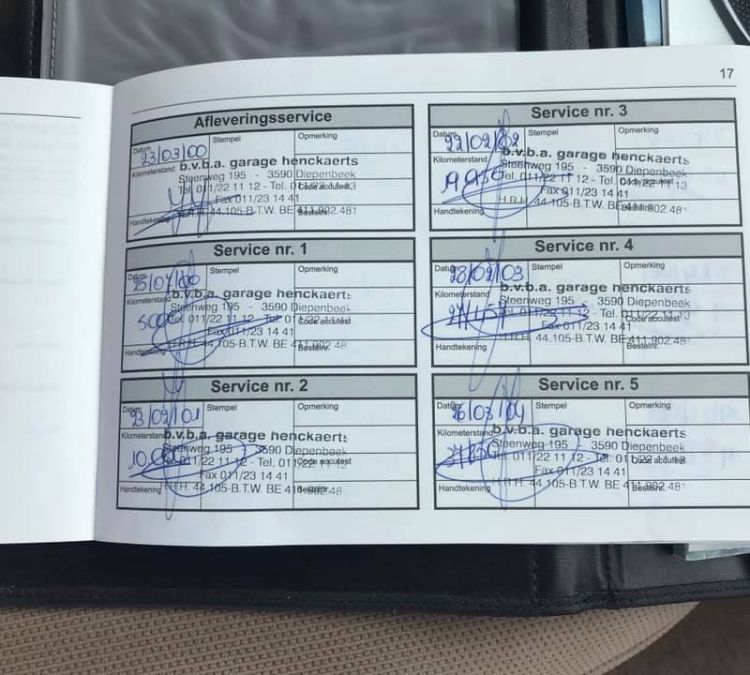 17
Afleveringsservice
Datum
Stempel
Opmerking
23/03/00
b.v.b.a. garage henckaerts
Kilometerstand
Steenweg 195 - 3590 Diepenbeek
Tel. 011/22 11 12 - Tel. 011/22 11 13
Code accutest
Fax 011/23 14 41
H.R.H. 44.105-B.T.W. BE 411.902.481
Handtekening
Bestelnr.
Service nr. 1
Datum
Stempel
Opmerking
b.v.b.a. garage henckaerts
Kilometerstand
Steenweg 195 - 3590 Diepenbeek
Tel. 011/22 11 12 - Tel. 011/22
Code accutest
Fax 011/23 14 41
H.R.H. 44.105-B.T.W. BE 411.902.48
Handtekening
Bestelnr.
Service nr. 2
Datum
Stempel
Opmerking
23/02/01
Kilometerstand
b.v.b.a. garage henckaerts
Steenweg 195 - 3590 Diepenbeek
Tel. 011/22 11 12 - Tel. 011/22
Code accutest
Fax 011/23 14 41
Handtekening
H.R.H. 44.105-B.T.W. BE 411.902.48
Bestelnr.
Service nr. 3
Datum
Stempel
Opmerking
22/02/02
b.v.b.a. garage henckaerts
Kilometerstand
Steenweg 195 - 3590 Diepenbeek
Tel. 011/22 11 12 - Tel. 011/22 11 13
Code accutest
Fax 011/23 14 41
H.R.H. 44.105-B.T.W. BE 411.902.481
Handtekening
Bestelnr.
Service nr. 4
Datum
Stempel
Opmerking
28/02/03
b.v.b.a. garage henckaerts
Kilometerstand
Steenweg 195 - 3590 Diepenbeek
Tel. 011/22 11 12 - Tel. 011/22 11 13
Code accutest
Fax 011/23 14 41
H.R.H. 44.105-B.T.W. BE 411.902.48
Handtekening
Bestelnr.
Service nr. 5
Datum
Stempel
Opmerking
26/03/04
b.v.b.a. garage henckaerts
Kilometerstand
Steenweg 195 - 3590 Diepenbeek
Tel. 011/22 11 12 - Tel. 011/22
Code accutest
Fax 011/23 14 41
H.R.H. 44.105-B.T.W. BE 411.902.481
Handtekening
Bestelnr.